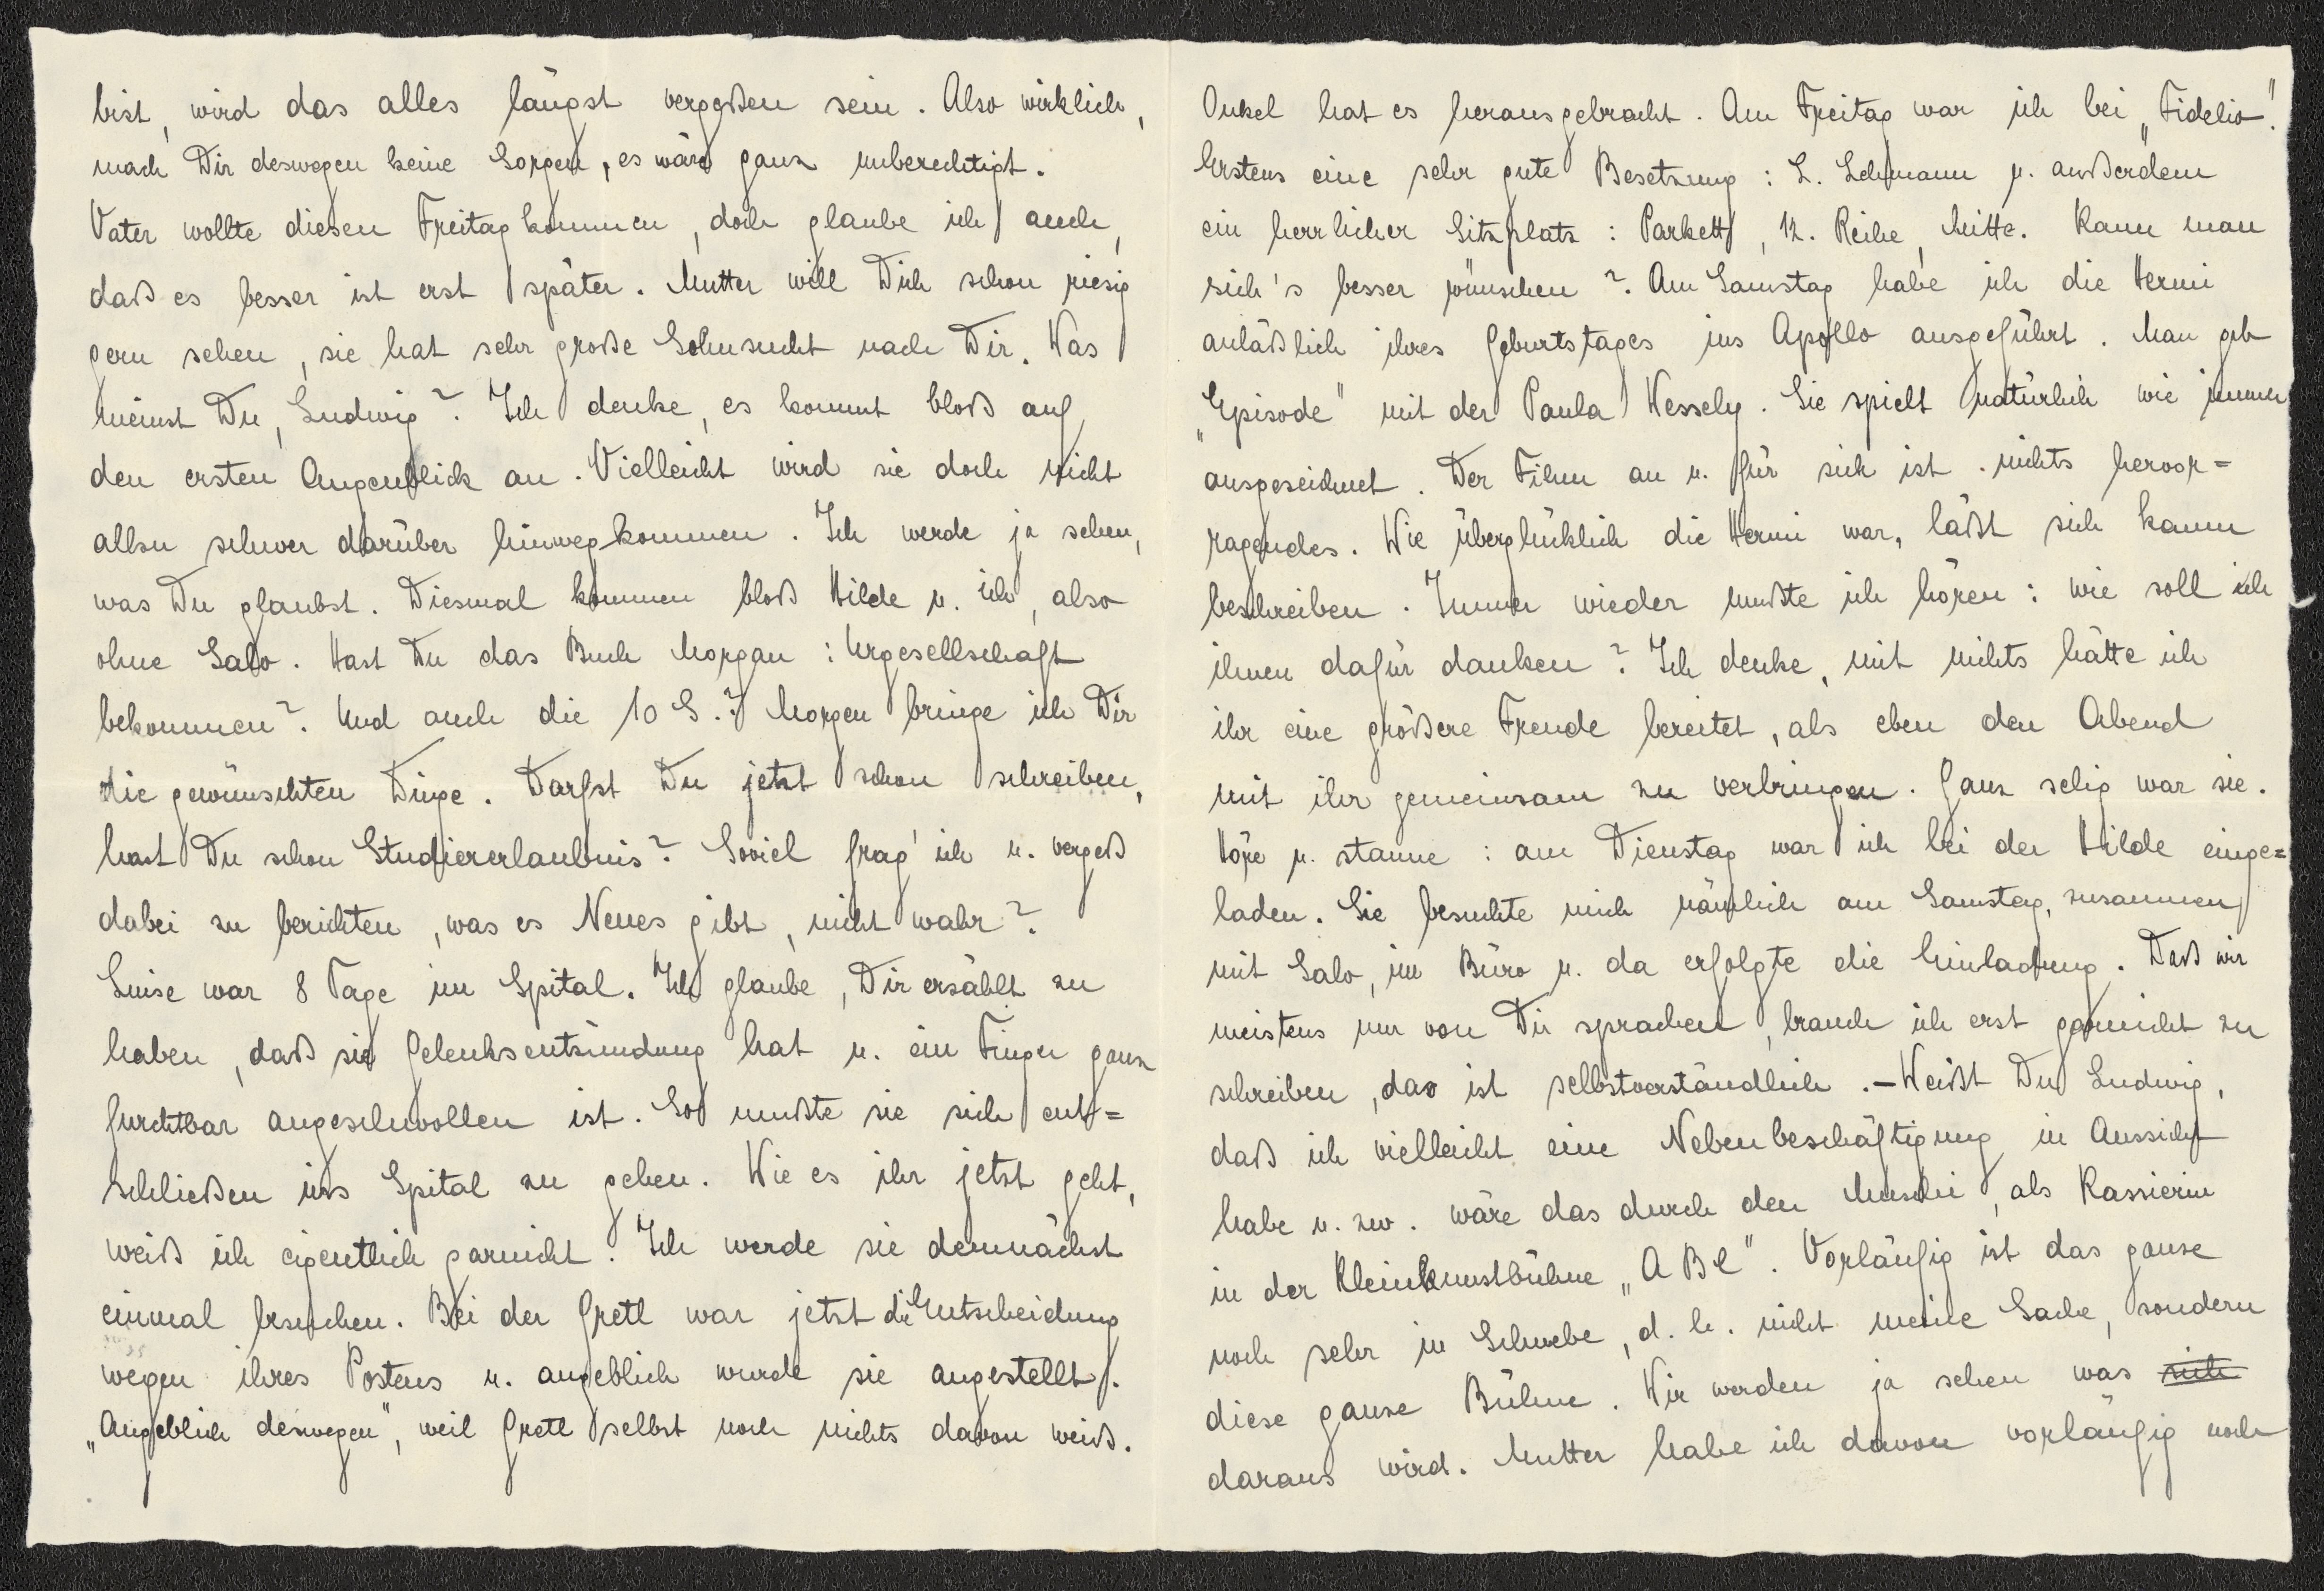 bist, wird das alles längst vergeßen sein. Also wirklich,
mach Dir deswegen keine Sorgen, es wäre ganz unberechtigt.
Vater wollte diesen Freitag kommen, doch glaube ich auch,
daß es besser ist erst später. Mutter will Dich schon riesig
gern sehen, sie hat sehr große Sehnsucht nach Dir. Was
meinst Du, Ludwig? Ich denke, es kommt bloß auf
den ersten Augenblick an. Vielleicht wird sie doch nicht
allzu schwer darüber hinwegkommen. Ich werde ja sehen,
was Du glaubst. Diesmal kommen bloß Hilde u. ich, also
ohne Salo. Hast Du das Buch Morgan: Urgesellschaft
bekommen? Und auch die 10 S.? Morgen bringe ich Dir
die gewünschten Dinge. Darfst Du jetzt schon schreiben,
hast Du schon Studiererlaubnis? Soviel frag' ich u. vergeß
dabei zu berichten, was es Neues gibt, nicht wahr?
Luise war 8 Tage im Spital. Ich glaube, Dir erzählt zu
haben, daß sie Gelenksentzündung hat u. ein Finger ganz
furchtbar angeschwollen ist. So mußte sie sich ent=
schließen ins Spital zu gehen. Wie es ihr jetzt geht,
weiß ich eigentlich garnicht. Ich werde sie demnächst
einmal besuchen. Bei der Gretl war jetzt die Entscheidung
wegen ihres Postens u. angeblich wurde sie angestellt.
„Angeblich deswegen", weil Gretl selbst noch nichts davon weiß.
Onkel hat es herausgebracht. Am Freitag war ich bei „Fidelio".
Erstens eine sehr gute Besetzung: L. Lehmann u. außerdem
ein herrlicher Sitzplatz: Parkett, 12. Reihe, Mitte. Kann man
sich's besser wünschen? Am Samstag habe ich die Hermi
anläßlich ihres Geburtstages ins Apollo ausgeführt. Man gab
„Episode" mit der Paula Wessely. Sie spielt natürlich wie immer
ausgezeichnet. Der Film an u. für sich ist nichts hervor=
ragendes. Wie überglücklich die Hermi war, läßt sich kaum
beschreiben. Immer wieder mußte ich hören: wie soll ich
ihnen dafür danken? Ich denke, mit nichts hätte ich
ihr eine größere Freude bereitet, als eben den Abend
mit ihr gemeinsam zu verbringen. Ganz selig war sie.
Höre u. staune: am Dienstag war ich bei der Hilde einge=
laden. Sie besuchte mich nämlich am Samstag, zusammen
mit Salo, im Büro u. da erfolgte die Einladung. Daß wir
meistens nur von Dir sprachen, brauch ich erst garnicht zu
schreiben, das ist selbstverständlich. – Weißt Du Ludwig,
daß ich vielleicht eine Nebenbeschäftigung in Aussicht
habe u. zw. wäre das durch den Muschi, als Kassierin
in der Kleinkunstbühne „ABC". Vorläufig ist das ganze
noch sehr in Schwebe, d. h. nicht meine Sache, sondern
diese ganze Bühne. Wir werden ja sehen was sich
daraus wird. Mutter habe ich davon vorläufig noch